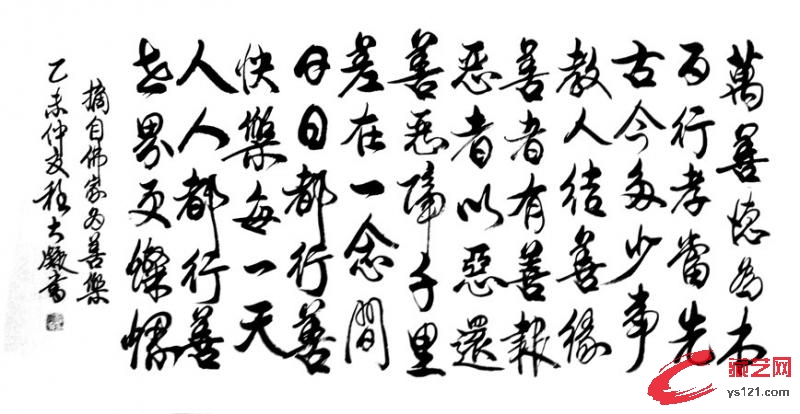 萬善德為本
百行孝當先
古今多少事
教人结善缘
善者有善報
恶者以惡還
善惡隔千里
差在一念間
日日都行善
快樂每一天
人人都行善
世界更燦爛
摘自佛家为善樂
乙未仲夏程大書
艺网
ys121.com